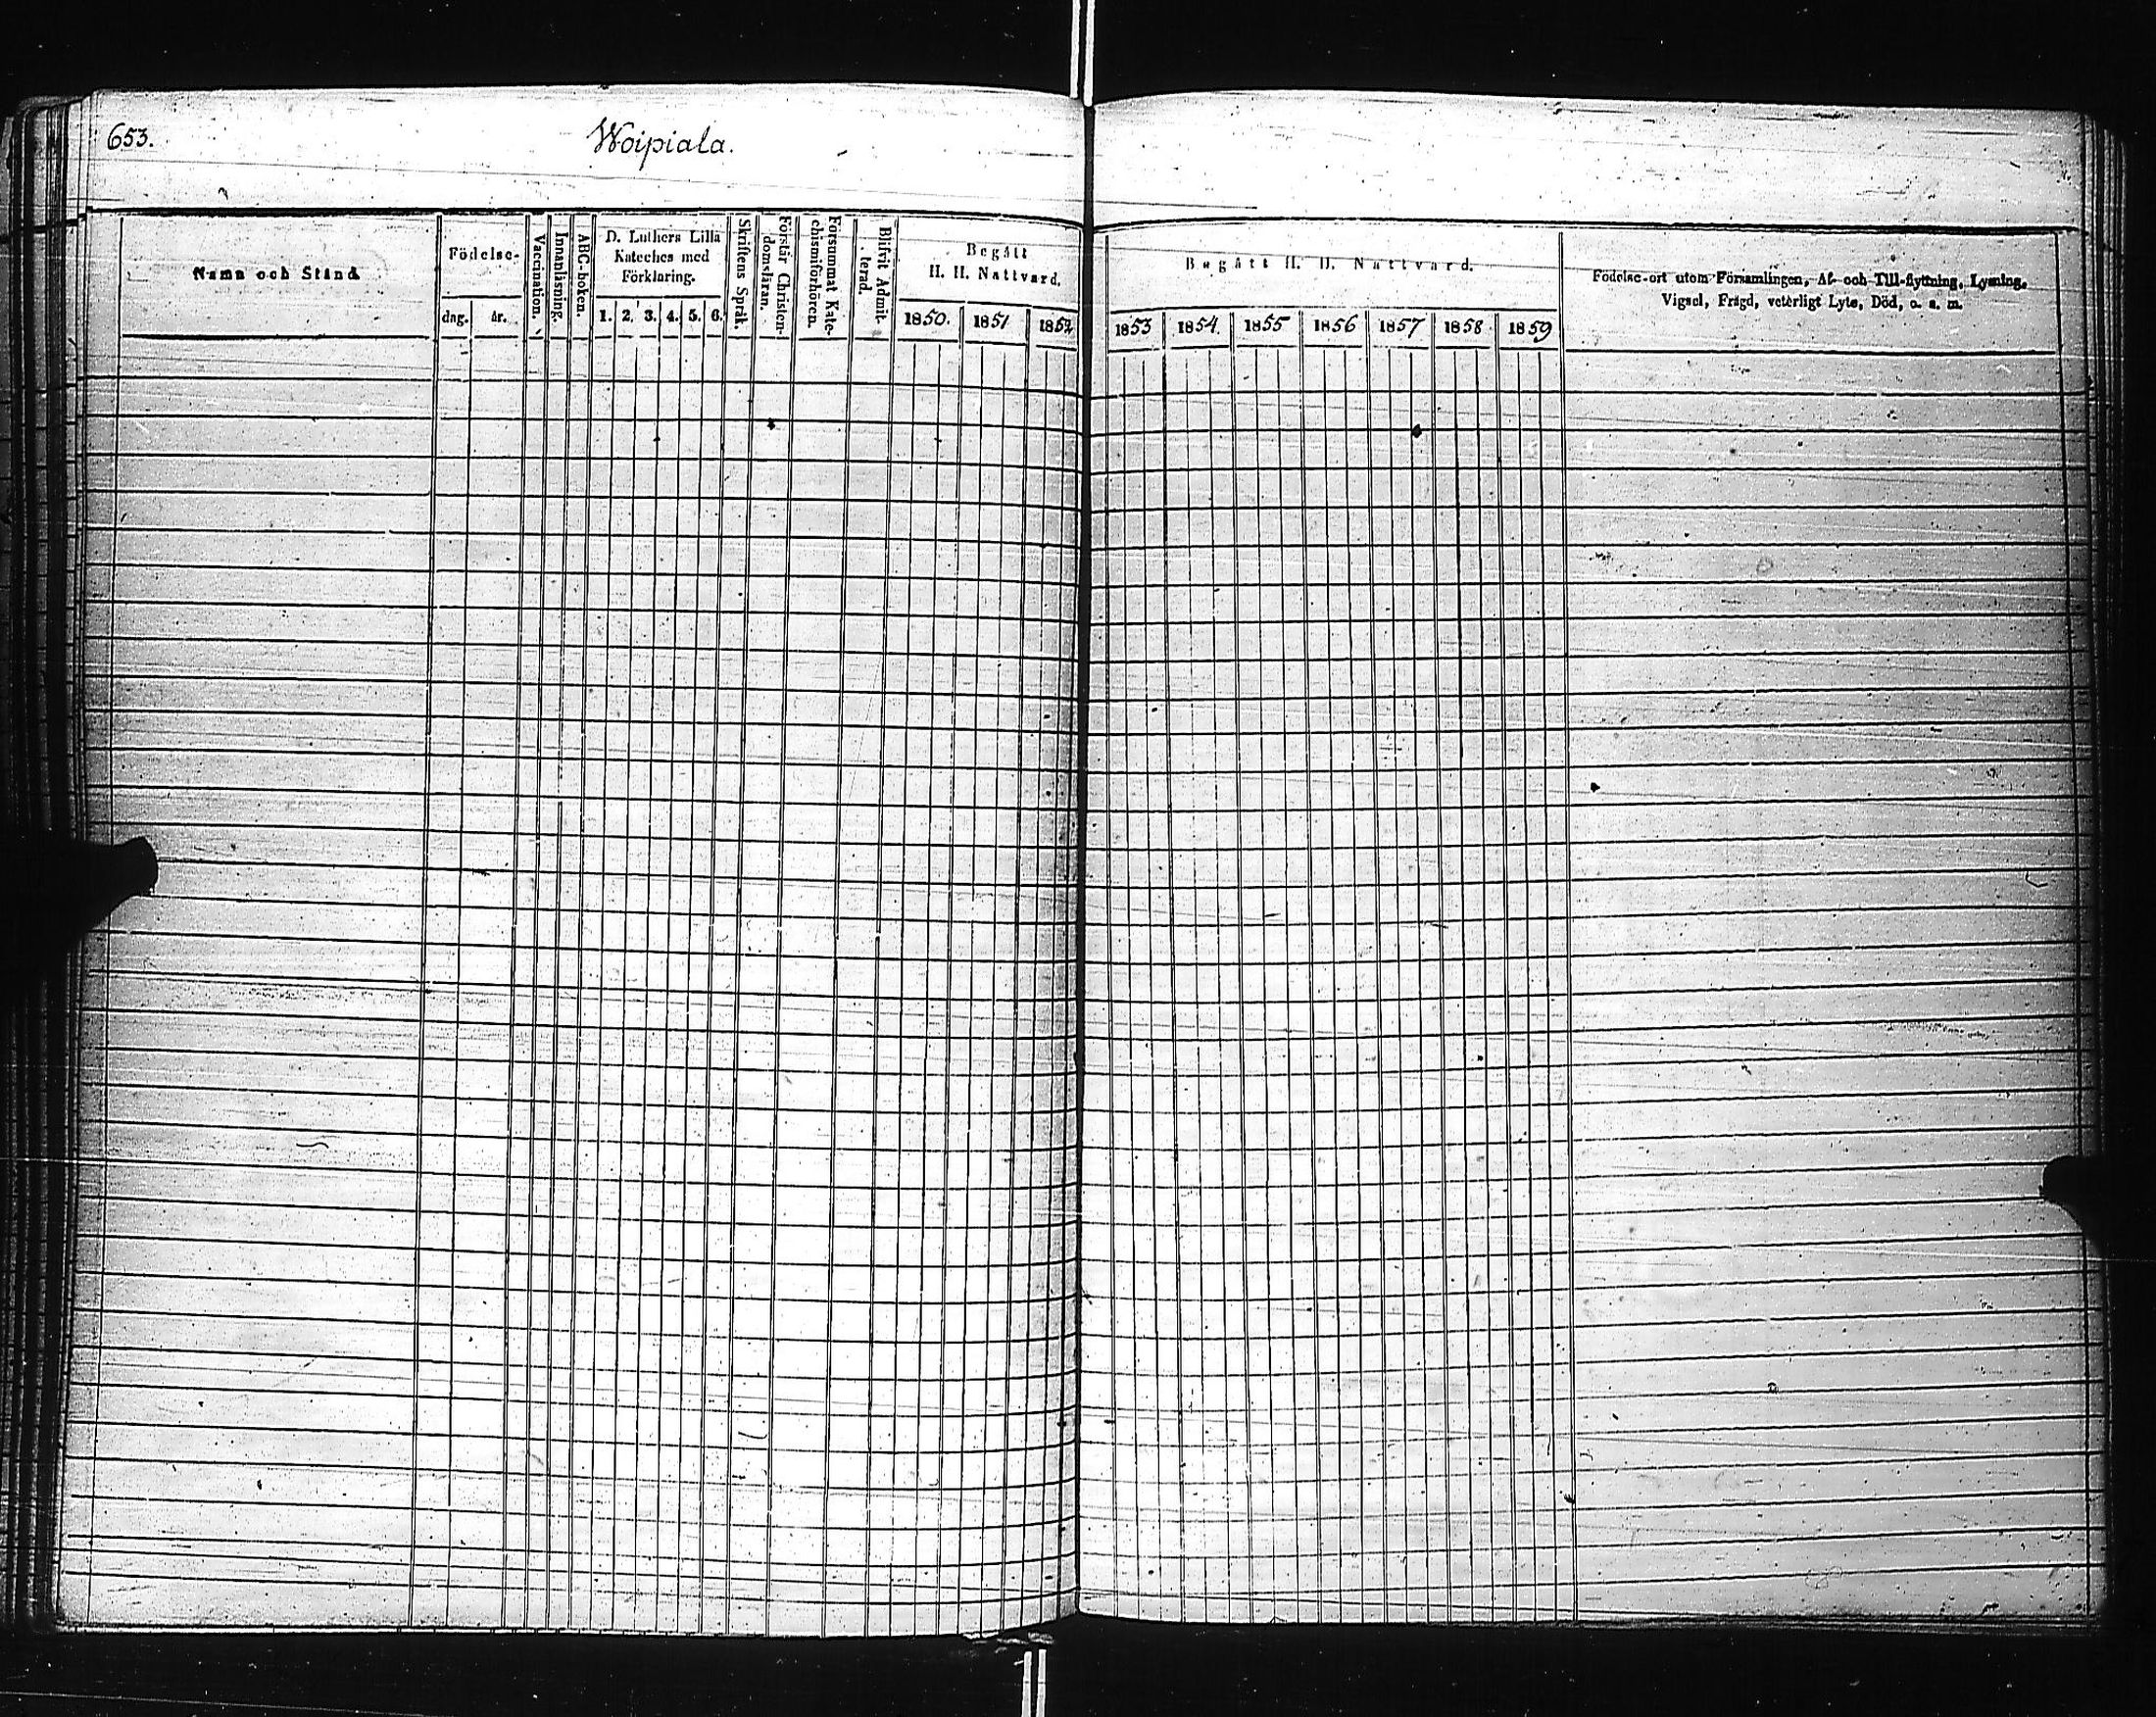 653.
Woipiala.
Namn och Stånd.
Födelse-
dag.
år.
Vaccination.
Innanläsning.
ABC-boken.
D. Luthers Lilla
Kateches med
Förklaring.
1. 2. 3. 4. 5. 6.
Skriftens Språk.
Förstår Christen-
domsläran.
Försummat Kate-
chismiförhören.
Blifvit Admit-
terad.
Begått
H. H. Nattvard.
1850. 1851 1852
Begått H. H. Nattvard.
1853 1854. 1855 1856 1857 1858 1859
Födelse-ort utom Församlingen, Af- och Till-flyttning, Lysning,
Vigsel, Frägd, veterligt Lyte, Död, o. s. m.